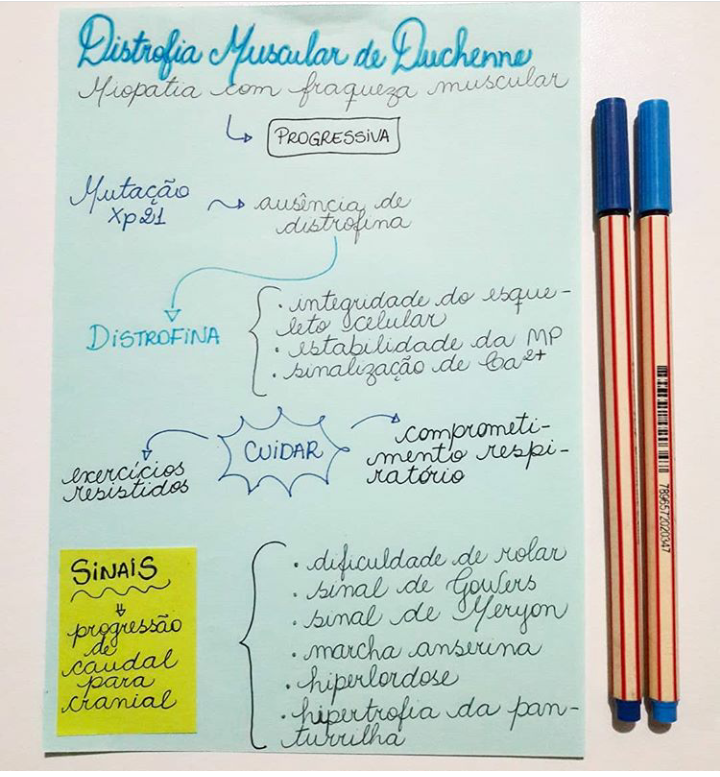 Distrofia Muscular de Duchenne
Miopatia com fraqueza muscular
PROGRESSIVA
Mutação
Xp21
ausência de
distrofina
DISTROFINA
• integridade do esque-
leto celular
• estabilidade da MP
• sinalização de Ca²⁺
CUIDAR
exercícios
resistidos
comprometi-
mento respi-
ratório
SINAIS
progressão
de
caudal
para
cranial
• dificuldade de rolar
• sinal de Gowers
• sinal de Meryon
• marcha anserina
• hiperlordose
• hipertrofia da pan-
turrilha
7896572020347